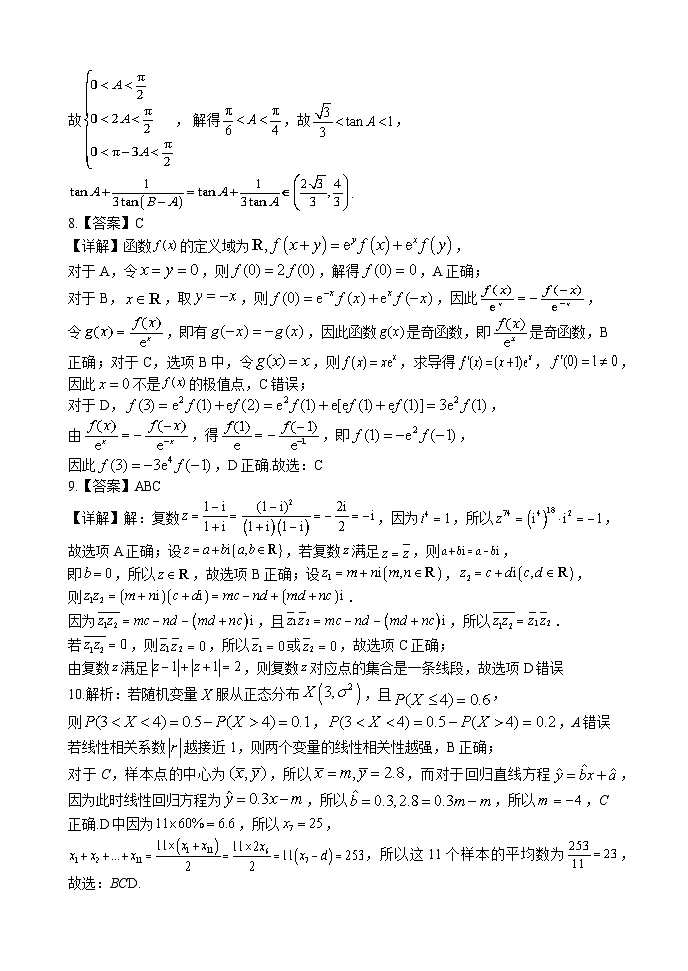 故{0<A<π/2
0<2A<π/2
0<π-3A<π/2 , 解得π/6<A<π/4,故√3/3<tan A<1,
tan A+1/(3tan(B-A))=tan A+1/(3tan A)∈(2√3/3,4/3).
8.【答案】C
【详解】函数f(x)的定义域为R,f(x+y)=e^y f(x)+e^x f(y),
对于A,令x=y=0,则f(0)=2f(0),解得f(0)=0,A正确;
对于B,x∈R,取y=-x,则f(0)=e^{-x}f(x)+e^x f(-x),因此f(x)/e^x=-f(-x)/e^{-x},
令g(x)=f(x)/e^x,即有g(-x)=-g(x),因此函数g(x)是奇函数,即f(x)/e^x是奇函数,B
正确;对于C,选项B中,令g(x)=x,则f(x)=xe^x,求导得f′(x)=(x+1)e^x,f′(0)=1≠0,
因此x=0不是f(x)的极值点,C错误;
对于D,f(3)=e²f(1)+ef(2)=e²f(1)+e[ef(1)+ef(1)]=3e²f(1),
由f(x)/e^x=-f(-x)/e^{-x},得f(1)/e=-f(-1)/e^{-1},即f(1)=-e²f(-1),
因此f(3)=-3e⁴f(-1),D正确.故选:C
9.【答案】ABC
【详解】解:复数z=(1-i)/(1+i)=(1-i)²/((1+i)(1-i))=-2i/2=-i,因为i⁴=1,所以z^{74}=(i⁴)^{18}·i²=-1,
故选项A正确;设z=a+bi(a,b∈R),若复数z满足z=z̅,则a+bi=a-bi,
即b=0,所以z∈R,故选项B正确;设z₁=m+ni(m,n∈R),z₂=c+di(c,d∈R),
则z₁z₂=(m+ni)(c+di)=mc-nd+(md+nc)i.
因为\overline{z₁z₂}=mc-nd-(md+nc)i,且z̅₁z̅₂=mc-nd-(md+nc)i,所以\overline{z₁z₂}=z̅₁z̅₂.
若\overline{z₁z₂}=0,则z̅₁z̅₂=0,所以z̅₁=0或z̅₂=0,故选项C正确;
由复数z满足|z-1|+|z+1|=2,则复数z对应点的集合是一条线段,故选项D错误
10.解析:若随机变量X服从正态分布X(3,σ²),且P(X≤4)=0.6,
则P(3<X<4)=0.5-P(X>4)=0.1,P(3<X<4)=0.5-P(X>4)=0.2,A错误
若线性相关系数|r|越接近1,则两个变量的线性相关性越强,B正确;
对于C,样本点的中心为(x̅,y̅),所以x̅=m,y̅=2.8,而对于回归直线方程ŷ=b̂x+â,
因为此时线性回归方程为ŷ=0.3x-m,所以b̂=0.3,2.8=0.3m-m,所以m=-4,C
正确.D中因为11×60%=6.6,所以x₇=25,
x₁+x₂+...+x₁₁=11×(x₁+x₁₁)/2=11×2x₆/2=11(x₇-d)=253,所以这11个样本的平均数为253/11=23,
故选:BCD.